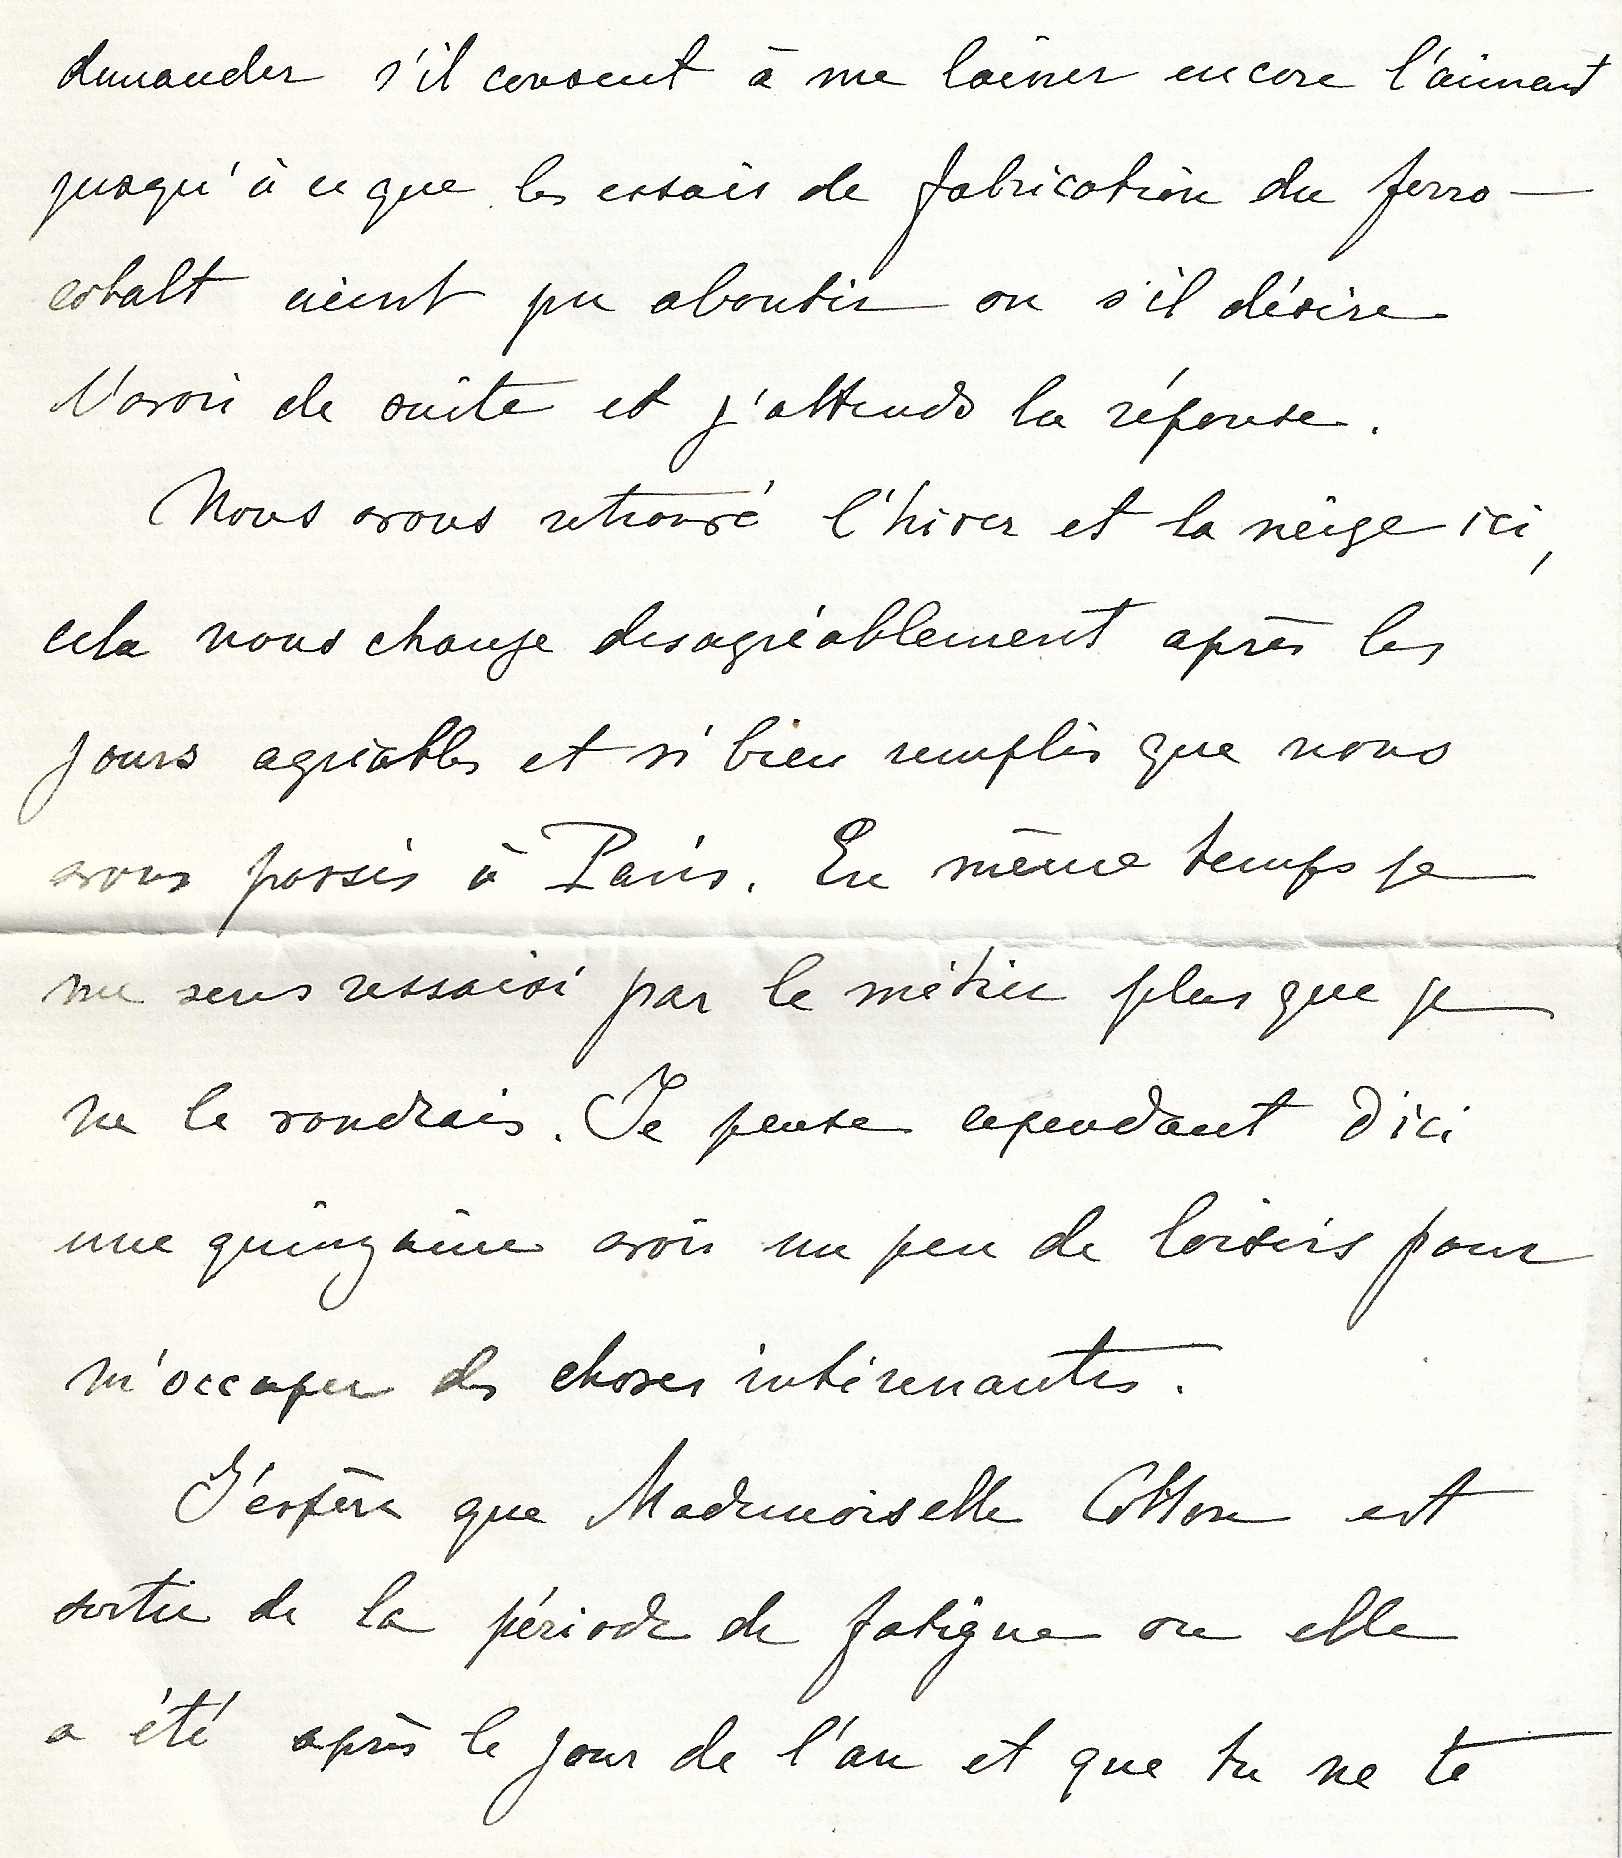 demander s'il consent à me laisser encore l'aimant
jusqu'à ce que les essais de fabrication du ferro-
cobalt aient pu aboutir ou s'il désire
l'avoir de suite et j'attends la réponse.
Nous avons retrouvé l'hiver et la neige ici,
cela nous change desagréablement après les
jours agréables et si bien remplis que nous
avons passés à Paris. En même temps je
me sens ressaisi par le métier plus que je
ne le voudrais. Je pense cependant d'ici
une quinzaine avoir un peu de loisirs pour
m'occuper des choses intéressantes.
J'espère que Mademoiselle Cotton est
sortie de la période de fatigue ou elle
a été après le jour de l'an et que tu ne te